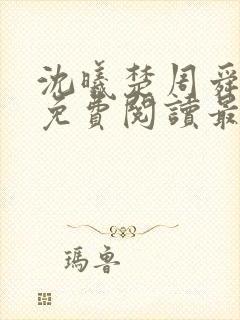 沈曦楚周舜
免費閱讀最
瑪魯